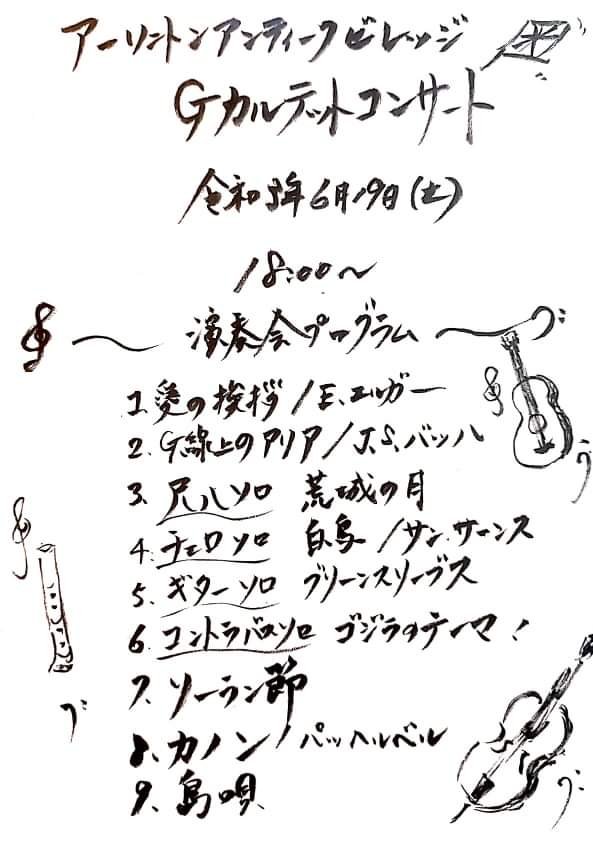 アーリントンアンティークビレッジ
Gカルテットコンサート
令和3年6月19日(土)
18:00〜
〜 演奏会プログラム 〜
1. 愛の挨拶 / E. エルガー
2. G線上のアリア / J.S.バッハ
3. 尺八ソロ 荒城の月
4. チェロソロ 白鳥 / サン.サーンス
5. ギターソロ グリーンスリーブス
6. コントラバスソロ ゴジラのテーマ!
7. ソーラン節
8. カノン / パッヘルベル
9. 島唄